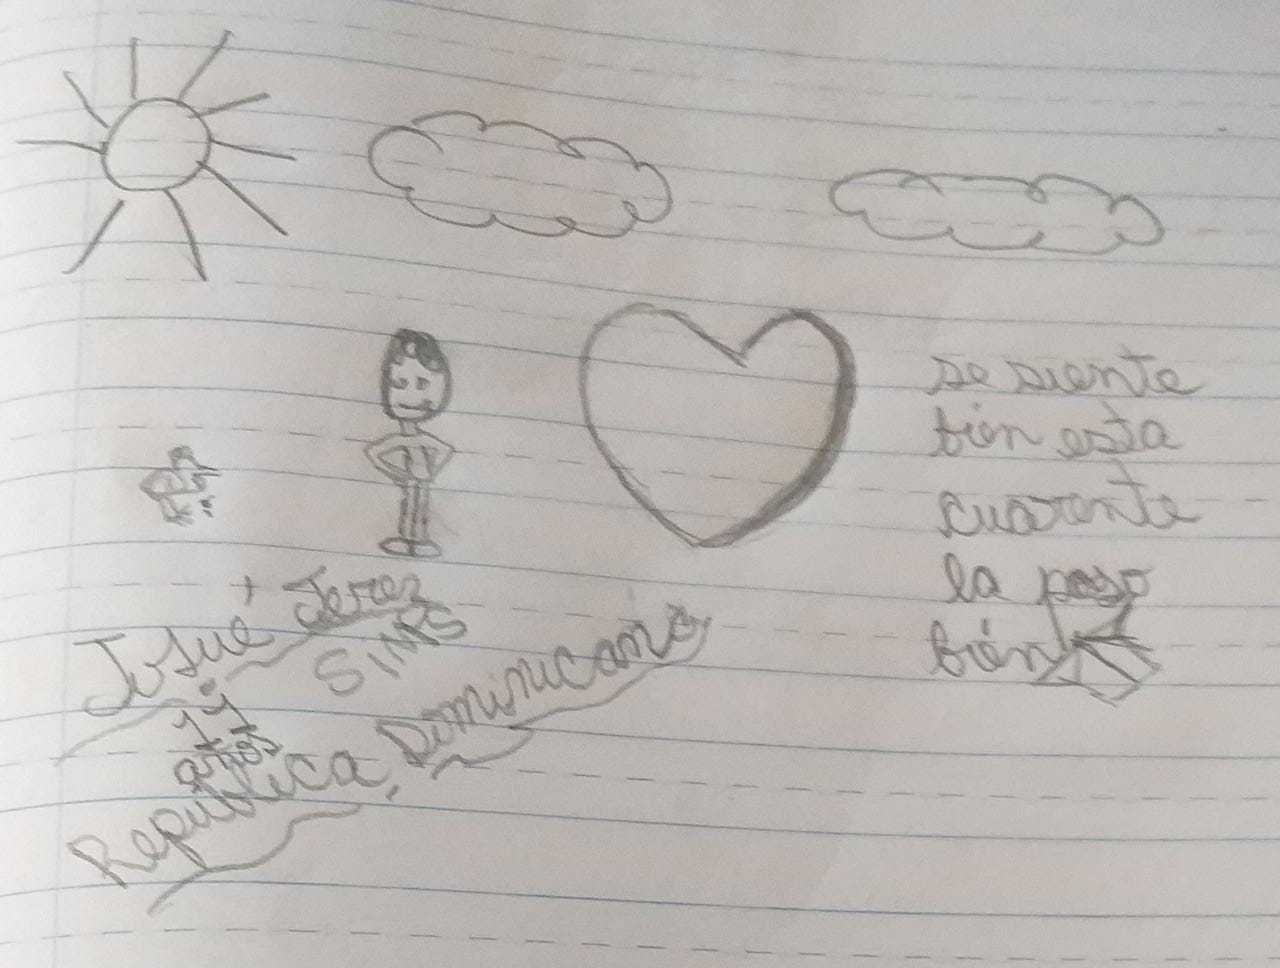 se siente
bien esta
cuarente
la paso
bién
Josué Jerez
SIMRS
14
años
Republica, Dominicana